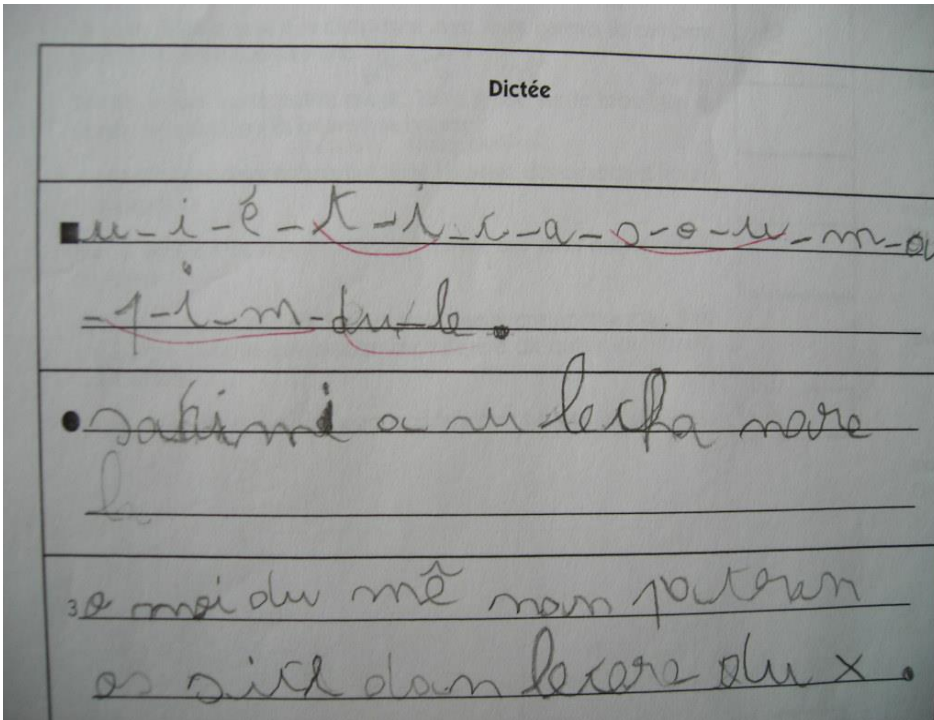 Dictée
u - i - é - t - i - r - a - o - o - u - m - a
- p - i - m - du - le .
sakimi a vu lecha nore
3 o moi du mê non patoran
os sicl dan lecare du x .